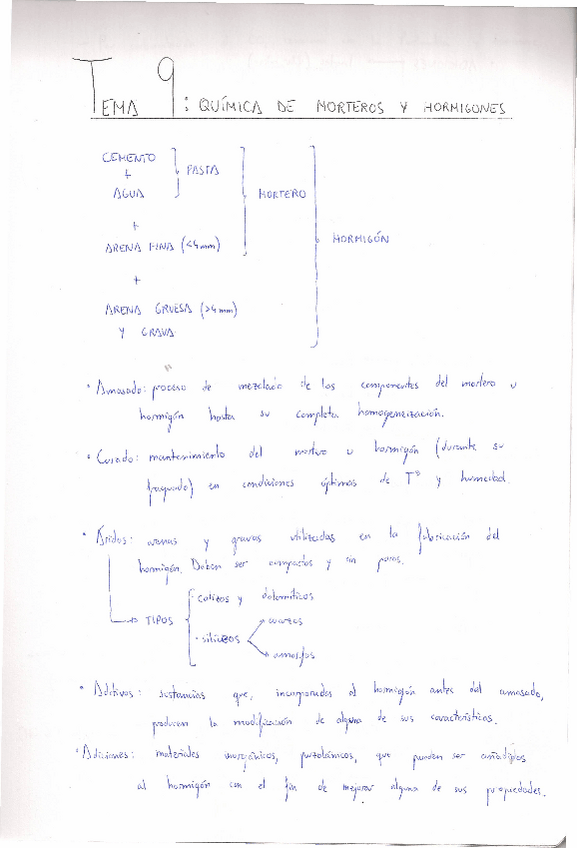 TEMA 9: QUÍMICA DE MORTEROS Y HORMIGONES
CEMENTO
+
PASTA
AGUA
MORTERO
+
HORMIGÓN
ARENA FINA (<4mm)
+
ARENA GRUESA (>4mm)
Y GRAVA
• Amasado: proceso de mezclado de los componentes del mortero u
hormigón hasta su completa homogeneización.
• Curado: mantenimiento del mortero u hormigón (durante su
fraguado) en condiciones óptimas de Tª y humedad
• Áridos: arenas y gravas utilizadas en la fabricación del
hormigón. Deben ser compactos y sin poros.
calizos y dolomíticos
→ TIPOS
cuarzos
• silíceos
amorfos
• Aditivos: sustancias que, incorporadas al hormigón antes del amasado,
producen la modificación de alguna de sus características.
• Adiciones: materiales inorgánicos, puzolánicos, que pueden ser añadidos
al hormigón con el fin de mejorar alguna de sus propiedades.